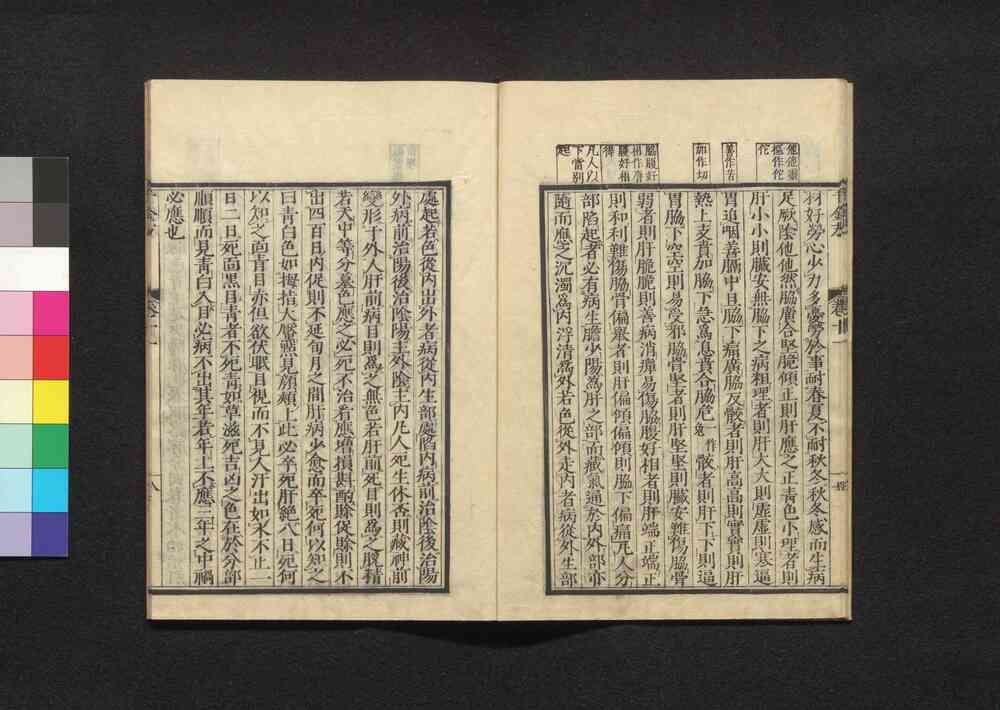 羽好勞心少力多憂勞於事耐春夏不耐秋冬秋冬感而生病
足厥陰他他然脇廣合堅脆傾正則肝應之正青色小理者則
肝小小則臟安無脇下之病粗理者則肝大大則虛虛則寒逼
胃迫咽善膈中且脇下痛廣脇反骹者則肝高高則實實則肝
熱上支賁加脇下急為息賁合脇危一作兔骹者則肝下下則逼
胃脇下空空則易受邪脇骨堅者則肝堅堅則臟安難傷脇骨
弱者則肝脆脆則善病消癉易傷脇腹好相者則肝端正端正
則和利難傷脇骨偏舉者則肝偏傾偏傾則脇下偏痛凡人分
部陷起者必有病生膽少陽為肝之部而藏氣通於內外部亦
隨而應之沉濁為內浮清為外若色從外走內者病從外生部
處起若色從內出外者病從內生部處陷內病前治陰後治陽
外病前治陽後治陰陽主外陰主內凡人死生休否則藏神前
變形于外人肝前病目則為之無色若肝前死目則為之脫精
若天中等分墓色應之必死不治看應增損斟酌賒促賒則不
出四百日內促則不延旬月之間肝病少愈而卒死何以知之
曰青白色如拇指大壓點見顏頰上此必卒死肝絕八日死何
以知之面青目赤但欲伏眠目視而不見人汗出如水不止一
曰二日死面黑目青者不死青如草滋死吉凶之色在於分部
順順而見青白入目必病不出其年若年上不應三年之中禍
必應也